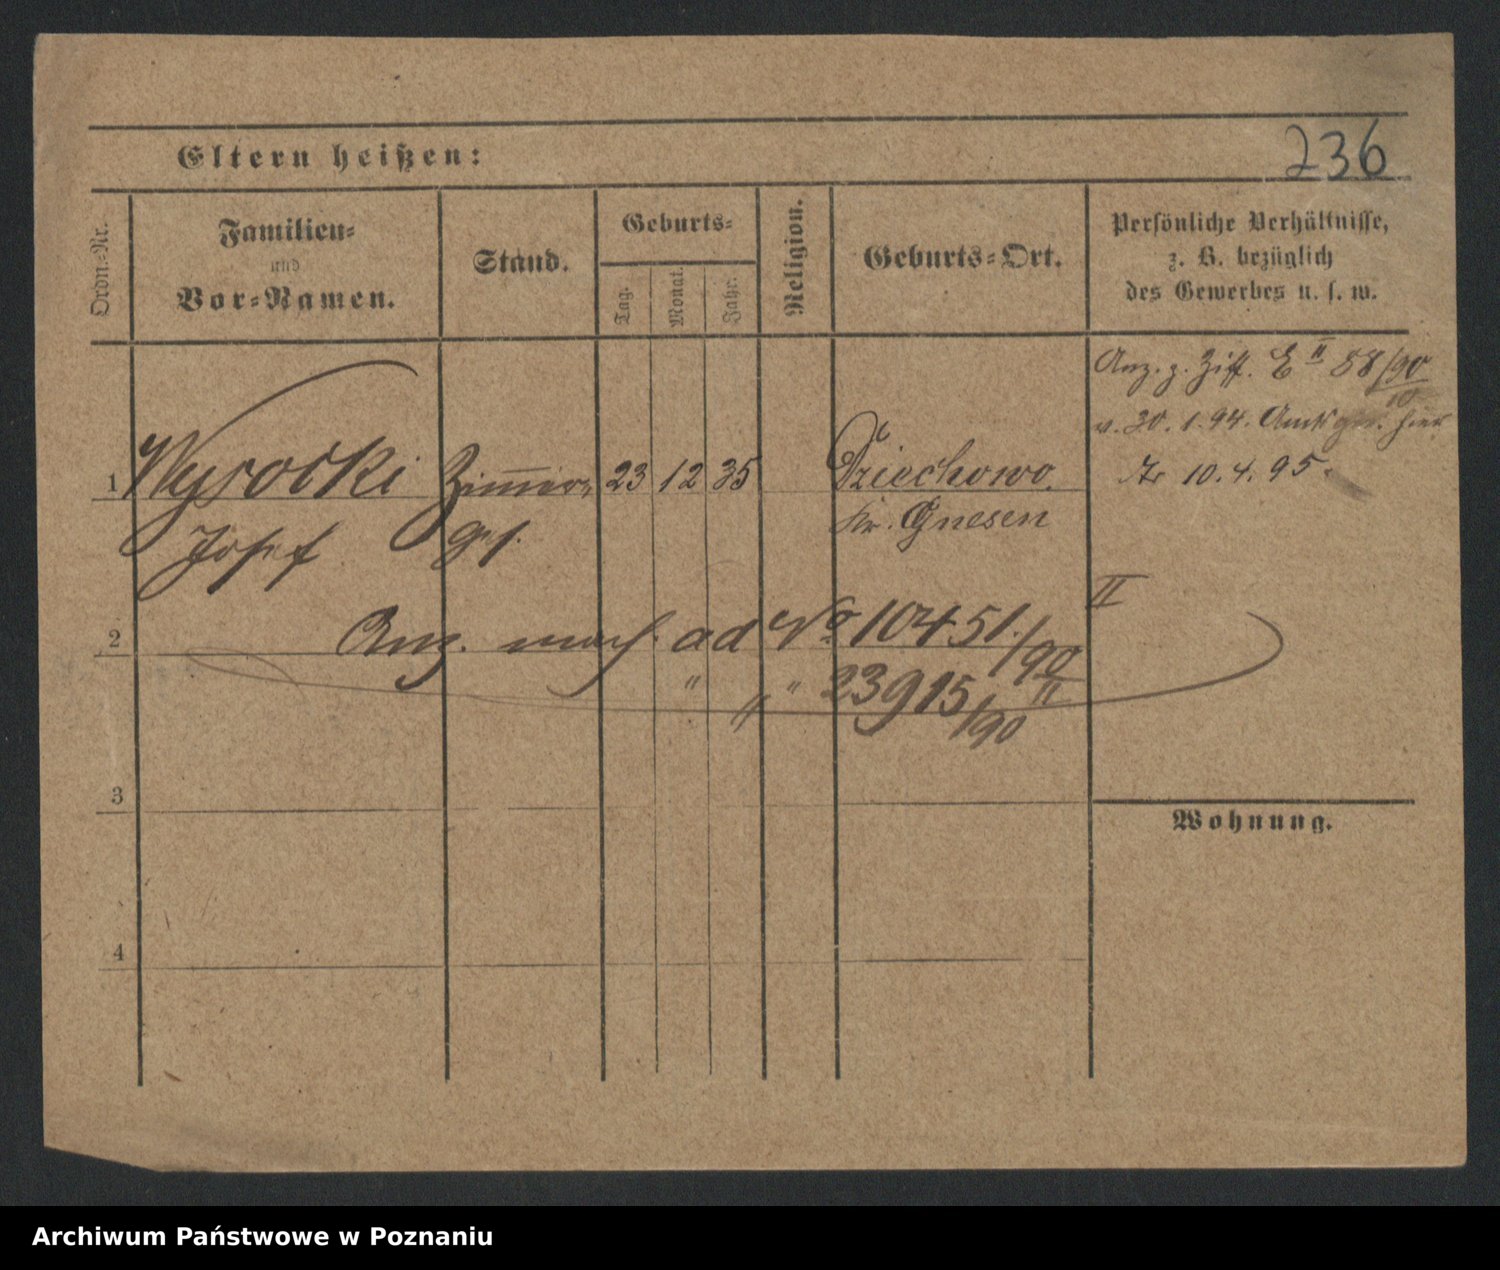 236
Eltern heißen:
Ordn.-Nr.
Familien-
und
Vor-Namen.
Stand.
Geburts-
Tag.
Monat.
Jahr.
Religion.
Geburts-Ort.
Persönliche Verhältnisse,
z. B. bezüglich
des Gewerbes u. s. w.
Anz. z. Ziff. E II 58/90
10
v. 30. 1. 94. hier
10. 4. 95.
1 Wysocki Zimmer- 23 12 35 Dziechowo
Josef ges. Kr. Gnesen
II
2 Anz. ad No 10451./90
" " " 23915/90 II
3
Wohnung.
4
Archiwum Państwowe w Poznaniu